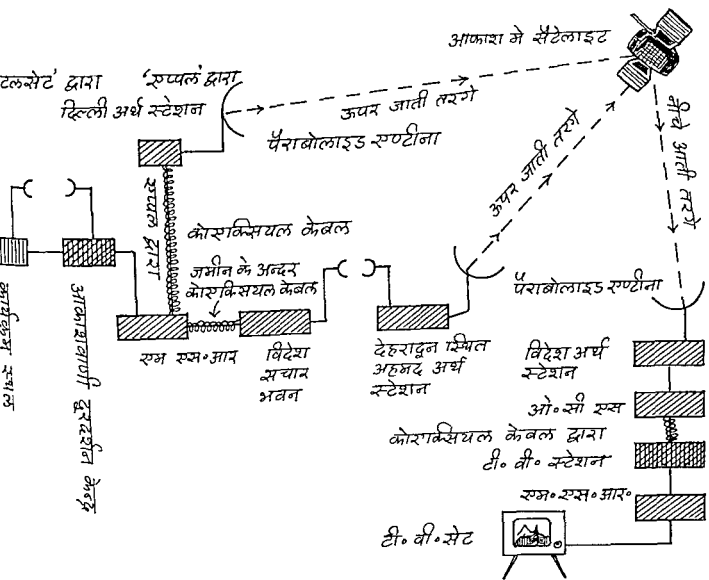 आकाश मे सैटेलाइट
टलसेट' द्वारा 'एप्पल' द्वारा
दिल्ली अर्थ स्टेशन
ऊपर जाती तरगे
पैराबोलाइड एण्टीना
ऊपर जाती तरगे
नीचे आती तरगे
एप्पल द्वारा
कोएक्सियल केबल
जमीन के अन्दर
कोएक्सियल केबल
पैराबोलाइड एण्टीना
कार्यक्रम स्थल
आकाशवाणी दूरदर्शन केन्द्र
एम एस॰आर
विदेश
सचार
भवन
देहरादून स्थित
अहमद अर्थ
स्टेशन
विदेश अर्थ
स्टेशन
ओ॰सी एस
कोएक्सियल केबल द्वारा
टी॰ वी॰ स्टेशन
एम॰एस॰आर॰
टी॰ वी॰ सेट